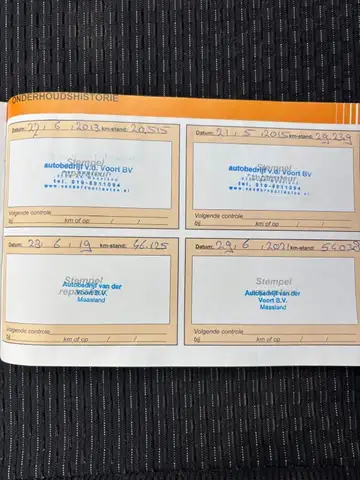 ONDERHOUDSHISTORIE
Datum: 27, 6, 2013 km-stand: 20,515
Stempel
autobedrijf v.d. Voort BV
reparateur
tel. 010-5911094
Volgende controle
bij km of op / /
Datum: 21, 5, 2015 km-stand: 29,239
Stempel
autobedrijf v.d. Voort BV
reparateur
tel. 010-5911094
Volgende controle
bij km of op / /
Datum: 28, 6, 19 km-stand: 46.125
Stempel
Autobedrijf van der
Voort B.V.
Maasland
Volgende controle
bij km of op / /
Datum: 29, 6, 2021 km-stand:
Stempel
Autobedrijf van der
Voort B.V.
Maasland
Volgende controle
bij km of op / /